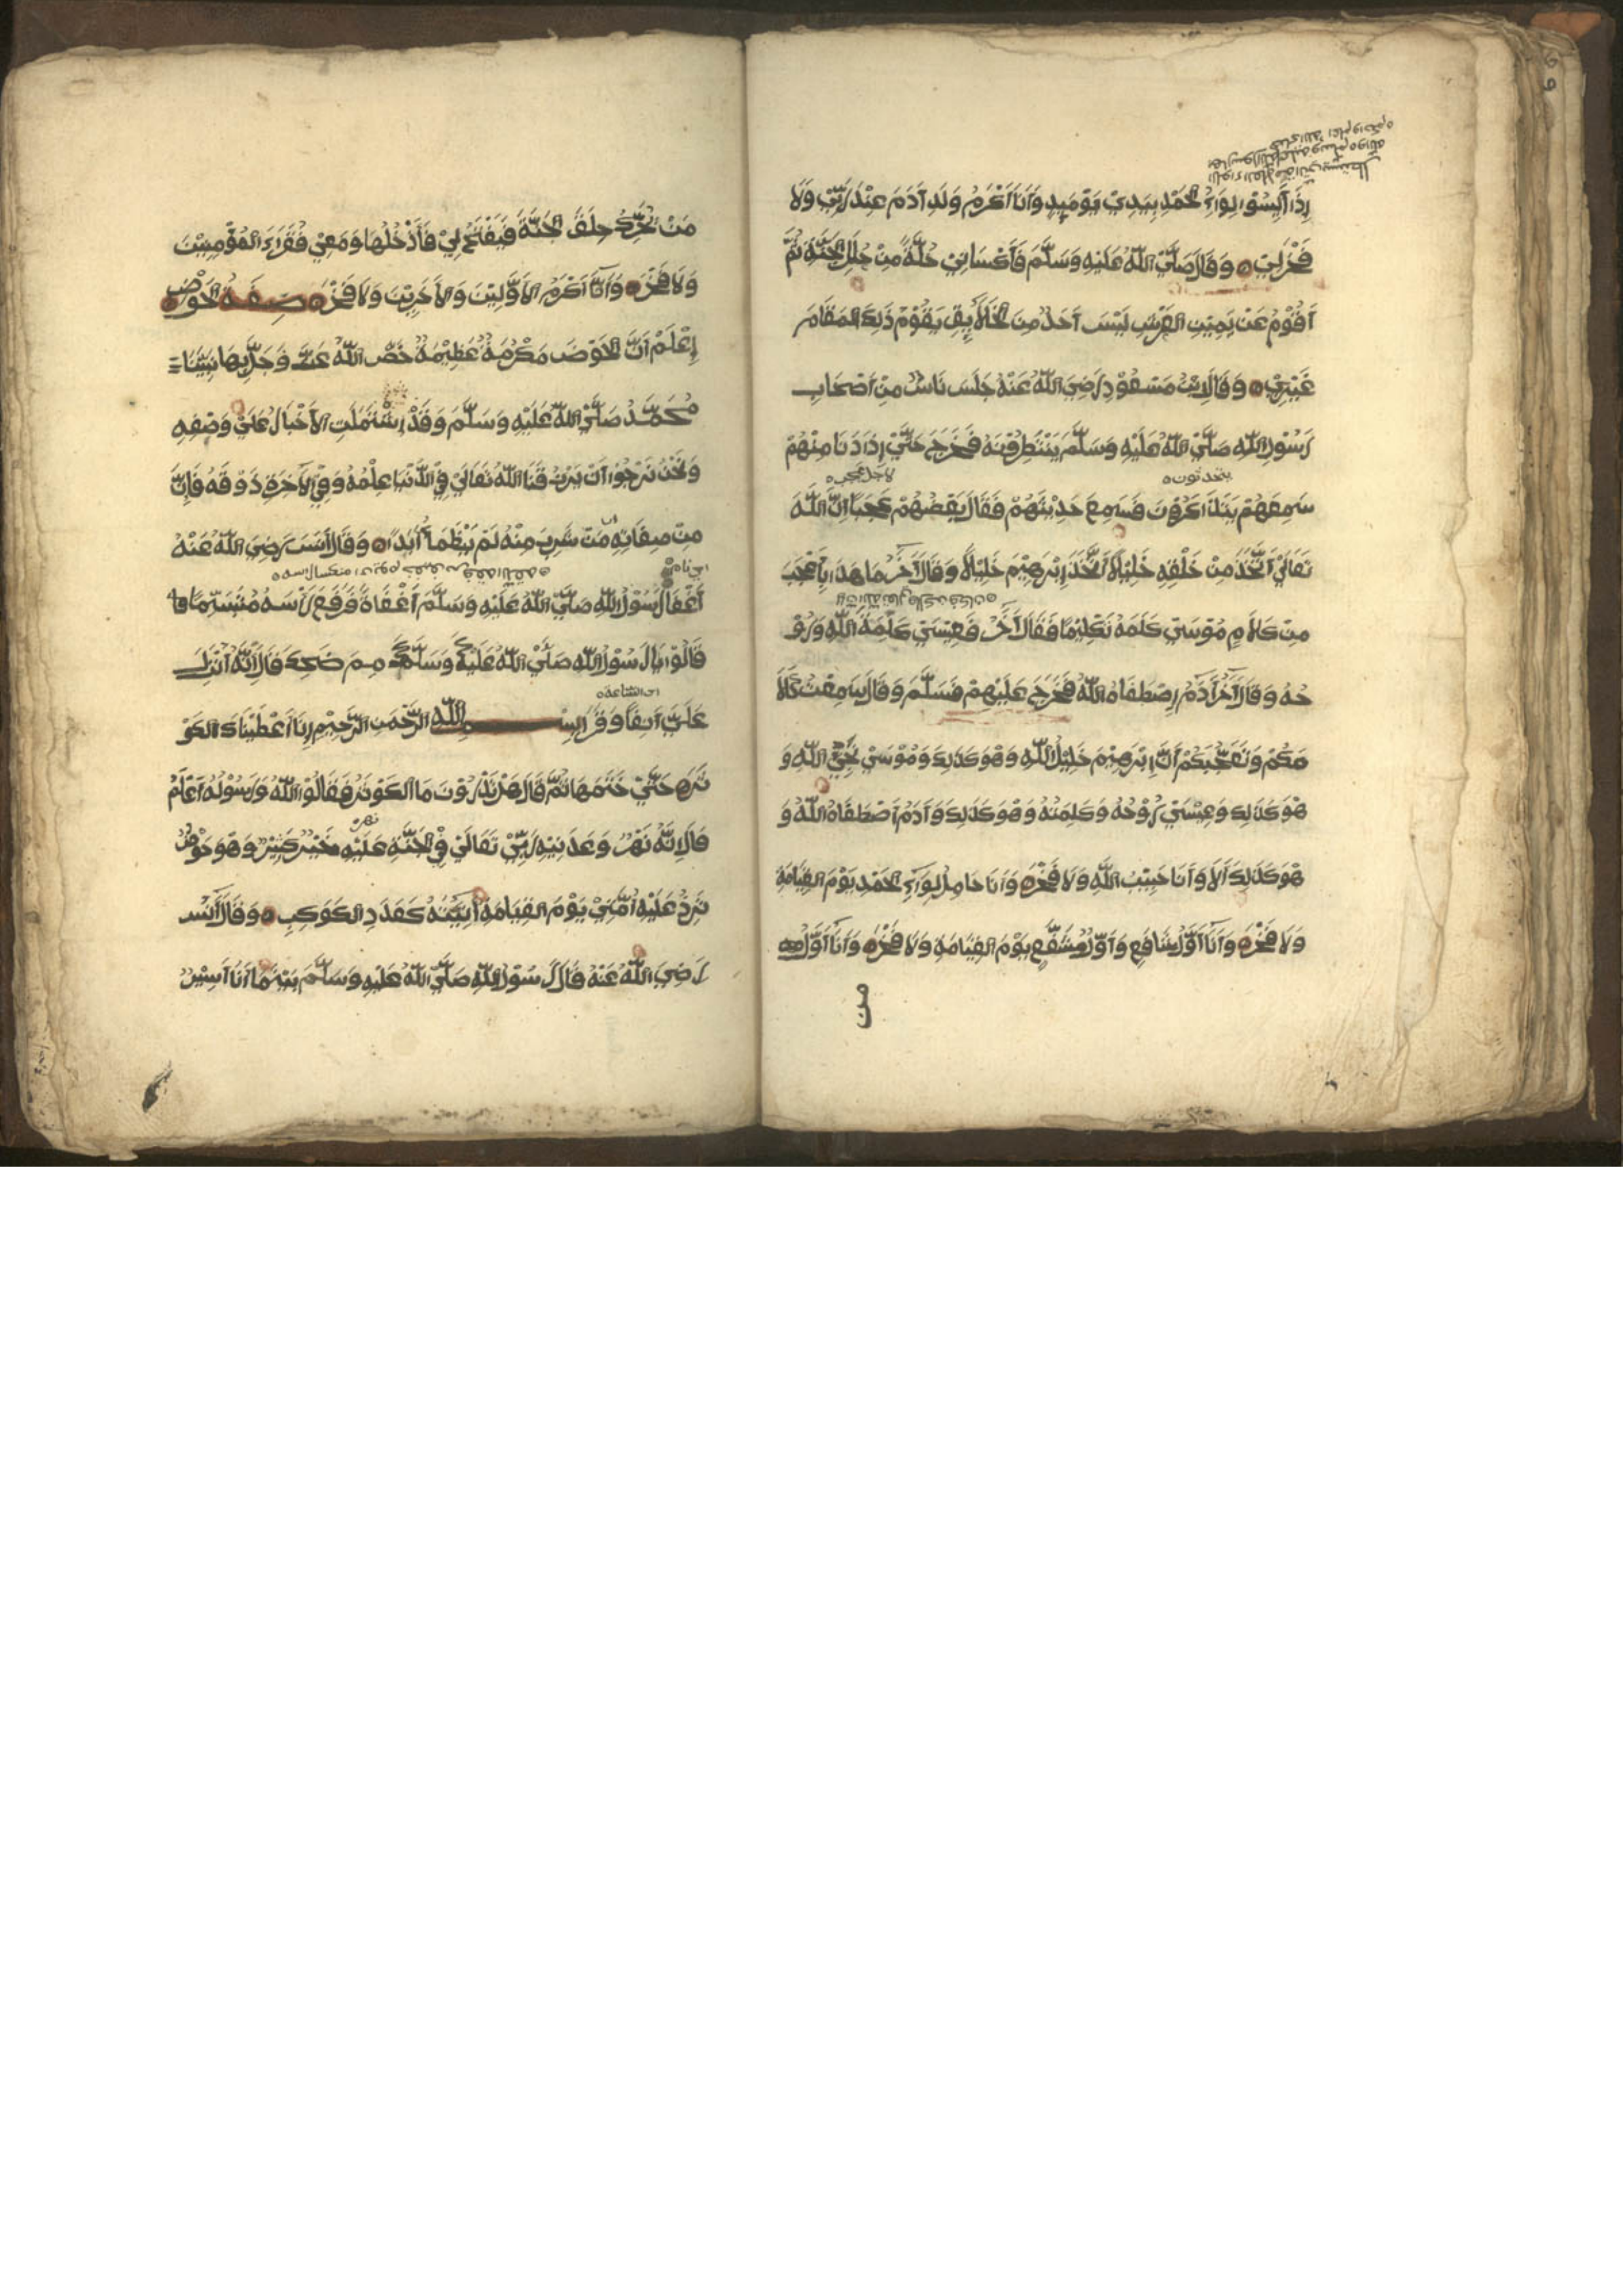 إِذَا أَيِسُوْا لِوَاءُ الْحَمْدِ بِيَدِيْ يَوْمَىِٕذٍ وَأَنَا أَكْرَمُ وَلَدِ أَدَمَ عِنْدَ رَبِّيْ وَلَا
فَخْرَ لِيْ وَقَالَ صَلَّيْ اللّٰهُ عَلَيْهِ وَسَلَّمَ فَأُكْسَانِيْ حُلَّةً مِنْ حُلَلِ الْجَنَّةِ ثُمَّ
أَقُوْمُ عَنْ يَمِيْنِ الْعَرْشِ لَيْسَ أَحَدٌ مِنَ الْخَلَاىِٕقِ يَقُوْمُ ذَلِكَ الْمَقَامَ
غَيْرِيْ وَقَالَ ابْنُ مَسْعُوْدٍ رَضِيَ اللّٰهُ عَنْهُ جَلَسَ نَاسٌ مِنْ أَصْحَابِ
رَسُوْلِ اللّٰهِ صَلَّيْ اللّٰهُ عَلَيْهِ وَسَلَّمَ يَنْتَظِرُوْنَهُ فَخَرَجَ حَتَّيْ إِذَا دَنَا مِنْهُمْ
يتحدثون
لاجل عجب
سَمِعَهُمْ يَتَذَاكَرُوْنَ فَسَمِعَ حَدِيْثَهُمْ فَقَالَ بَعْضُهُمْ عَجَبًا إِنَّ اللّٰهَ
تَعَالَيْ اتَّخَذَ مِنْ خَلْقِهِ خَلِيْلًا اتَّخَذَ إِبْرَهِيْمَ خَلِيْلًا وَقَالَ أَخَرُ مَا هَذَا بِأَعْجَبَ
مِنْ كَلَامِ مُوْسَيْ كَلَّمَهُ تَكْلِيْمًا فَقَالَ أَخَرُ فَعِيْسَيْ كَلِمَةُ اللّٰهِ وَرُوْ
حُهُ وَقَالَ أَخَرُ أَدَمُ إِصْطَفَاهُ اللّٰهُ فَخَرَجَ عَلَيْهِمْ فَسَلَّمَ وَقَالَ سَمِعْتُ كَلَا
مَكُمْ وَتَعَجُّبَكُمْ أَنَّ إِبْرَهِيْمَ خَلِيْلُ اللّٰهِ وَهُوَ كَذَلِكَ وَمُوْسَيْ نَجِيُّ اللّٰهِ وَ
هُوَ كَذَلِكَ وَعِيْسَيْ رُوْحُهُ وَكَلِمَتُهُ وَهُوَ كَذَلِكَ وَأَدَمُ اصْطَفَاهُ اللّٰهُ وَ
هُوَ كَذَلِكَ أَلَا وَأَنَا حَبِيْبُ اللّٰهِ وَلَا فَخْرَ وَأَنَا حَامِلُ لِوَاءِ الْحَمْدِ يَوْمَ الْقِيَامَةِ
وَلَا فَخْرَ وَأَنَا أَوَّلُ شَافِعٍ وَأَوَّلُ مُشَفَّعٍ يَوْمَ الْقِيَامَةِ وَلَا فَخْرَ وَأَنَا أَوَّلُ
من
مَنْ يُحَرِّكُ حِلَقَ الْجَنَّةِ فَيَفْتَحُ لِيْ فَأَدْخُلُهَا وَمَعِيْ فُقَرَاءُ الْمُؤْمِنِيْنَ
وَلَا فَخْرَ وَأَنَا أَكْرَمُ الْأَوَّلِيْنَ وَالْأَخِرِيْنَ وَلَا فَخْرَ صِفَةُ الْحَوْضِ
إِعْلَمْ أَنَّ الْحَوْضَ مَكْرُمَةٌ عَظِيْمَةٌ خَصَّ اللّٰهُ عَزَّ وَجَلَّ بِهَا نَبِيَّنَا
مُحَمَّدٌ صَلَّيْ اللّٰهُ عَلَيْهِ وَسَلَّمَ وَقَدْ إِشْتَمَلَتِ الْأَخْبَارُ عَلَيْ وَصْفِهِ
وَنَحْنُ نَرْجُوْا أَنْ يَرْزُقَنَا اللّٰهُ تَعَالَيْ فِيْ الدُّنْيَا عِلْمُهُ وَفِيْ الْأَخِرَةِ ذَوْقَهُ فَإِنَّ
مِنْ صِفَاتِهِ مَنْ شَرِبَ مِنْهُ لَمْ يَظْمَأْ أَبَدًا وَقَالَ أَنَسٌ رَضِيَ اللّٰهُ عَنْهُ
اي نام
أَغْفَا رَسُوْلُ اللّٰهِ صَلَّيْ اللّٰهُ عَلَيْهِ وَسَلَّمَ أَغْفَاةً فَرَفَعَ رَأْسَهُ مُتَبَسِّمًا فا
قَالُوْا يَا رَسُوْلَ اللّٰهِ صَلَّيْ اللّٰهُ عَلَيْكَ وَسَلَّمَ مِمَّ ضَحِكْتَ قَالَ إِنَّهُ أُنْزِلَ
اي الساعة
عَلَيَّ أَنِفًا وَقَرَأَ بِسْمِ اللّٰهِ الرَّحْمَنِ الرَّحِيْمِ إِنَّا أَعْطَيْنَاكَ الْكَوْ
ثَرَ حَتَّيْ خَتَمَهَا ثُمَّ قَالَ هَلْ تَدْرُوْنَ مَا الْكَوْثَرُ فَقَالُوْا اللّٰهُ وَرَسُوْلُهُ أَعْلَمُ
نهر
قَالَ إِنَّهُ نَهْرٌ وَعَدَنِيْهِ رَبِّيْ تَعَالَيْ فِيْ الْجَنَّةِ عَلَيْهِ خَيْرٌ كَثِيْرٌ وَهُوَ حَوْضٌ
تَرِدُ عَلَيْهِ أُمَّتِيْ يَوْمَ الْقِيَامَةِ أَنِيَتُهُ كَعَدَدِ الْكَوَكِبِ وَقَالَ أَنَسٌ
رَضِيَ اللّٰهُ عَنْهُ قَالَ رَسُوْلُ اللّٰهِ صَلَّيْ اللّٰهُ عَلَيْهِ وَسَلَّمَ بَيْنَمَا أَنَا أَسِيْرُ